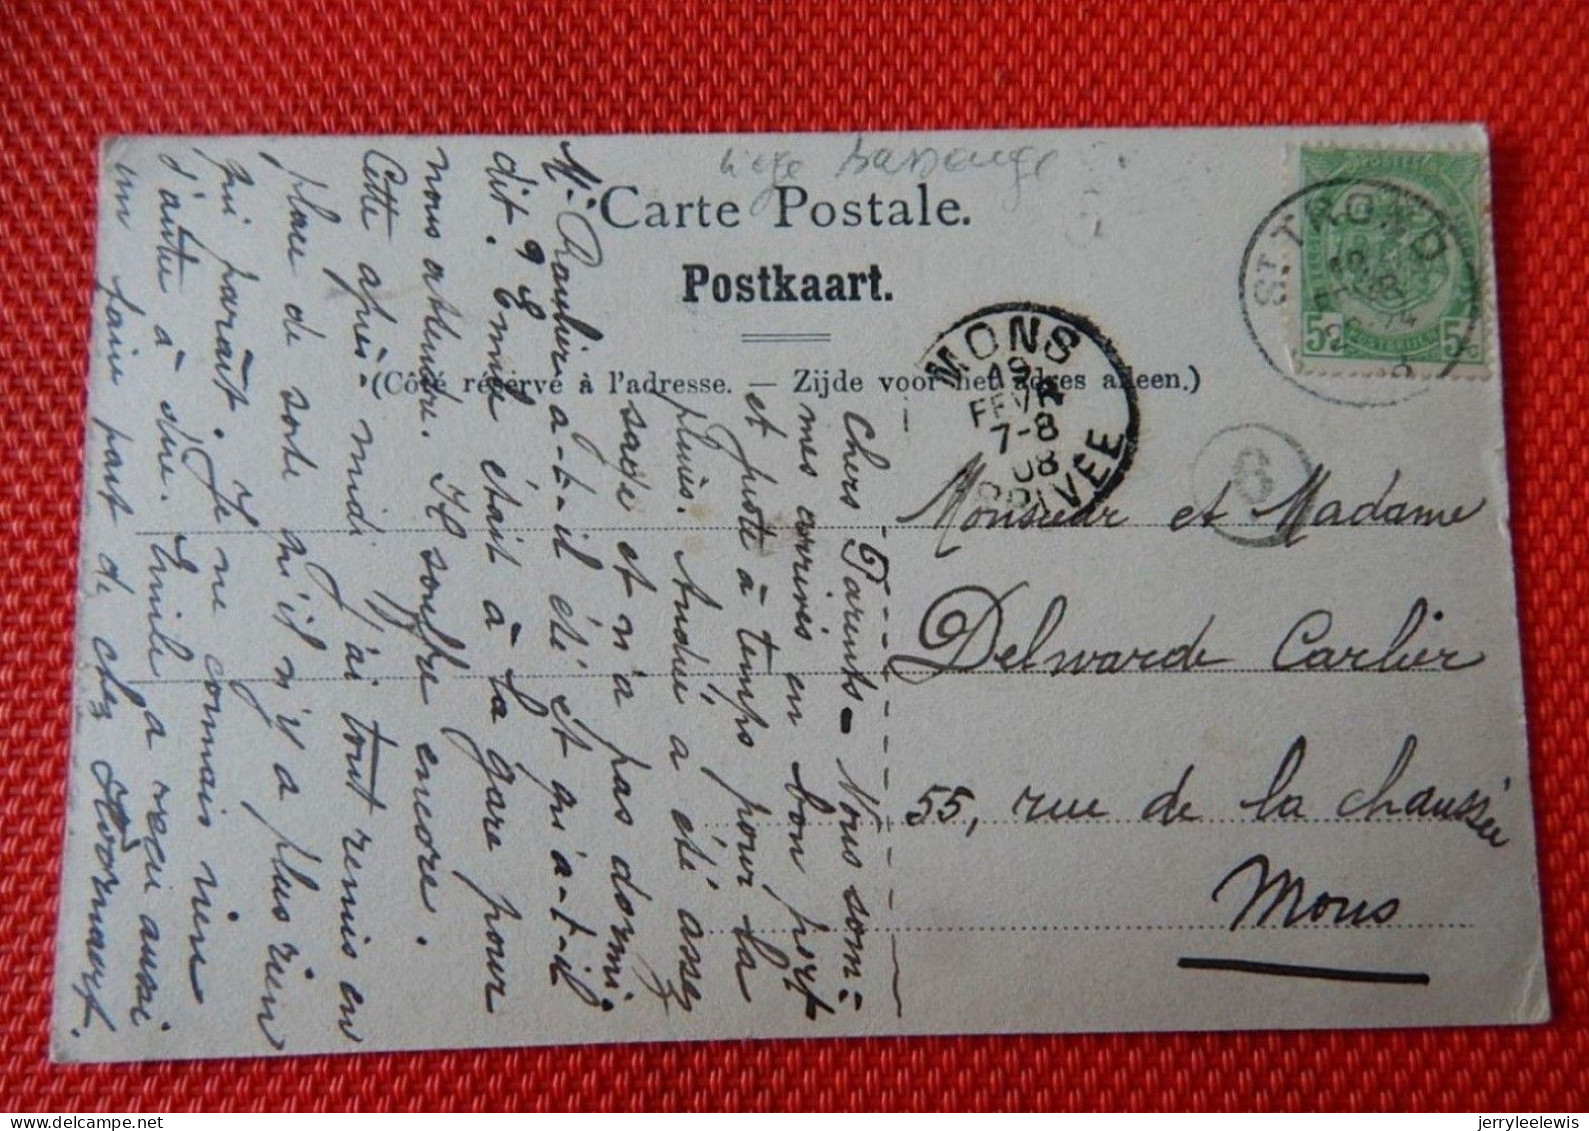 Liège Bassenge
Carte Postale.
Postkaart.
(Côté réservé à l'adresse. — Zijde voor het adres alleen.)
ST TROND
MONS
19
FEVR
7-8
08
6
5c 5c
Monsieur et Madame
Delwarde Carlier
55, rue de la chaussée
Mons
Chers Parents - Nous som=
mes arrivés en bon port
et juste à temps pour la
pluie. André a été assez
sage et n'a pas dormi.
Mr Roulier a-t-il été et qu'a-t-il
dit. Emile était à la gare pour
nous attendre. Il souffre encore.
Cette après-midi j'ai tout remis en
place de sorte qu'il n'y a plus rien
qui paraît. Je ne connais rien
d'autre à dire. Emile a reçu aussi
un faire part de chez
jerryleelewis